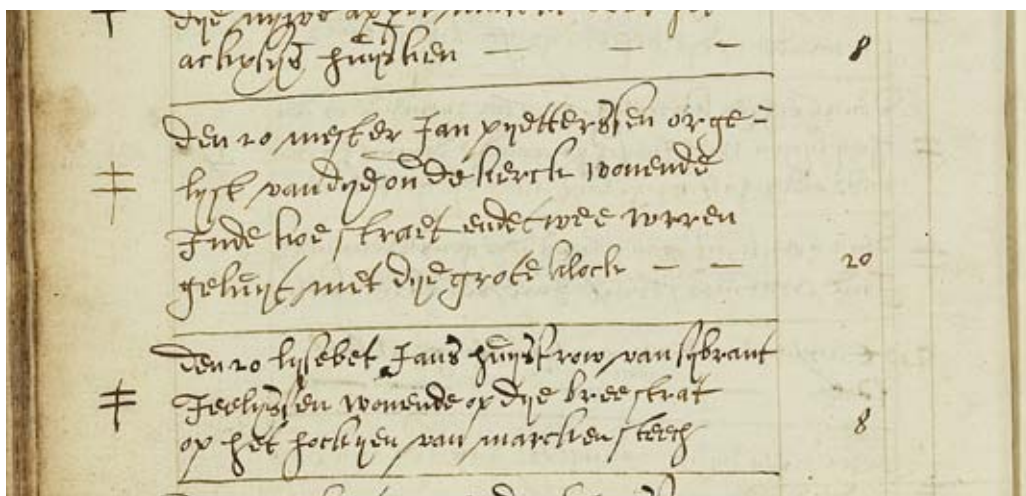 dye nywe
ackxlyes huijskien — — — 8
den 20 mester Jan pyetterssen orge=
lyst van dye oude kerck wonende
Inde koe straet ende twee wren
geluyt met dye grote klock — — 20
den 20 lysebet Jans huijsfrow van sijbrant
Jeelyssen wonende op dye breestrat
op het hockyen van marckensteech 8